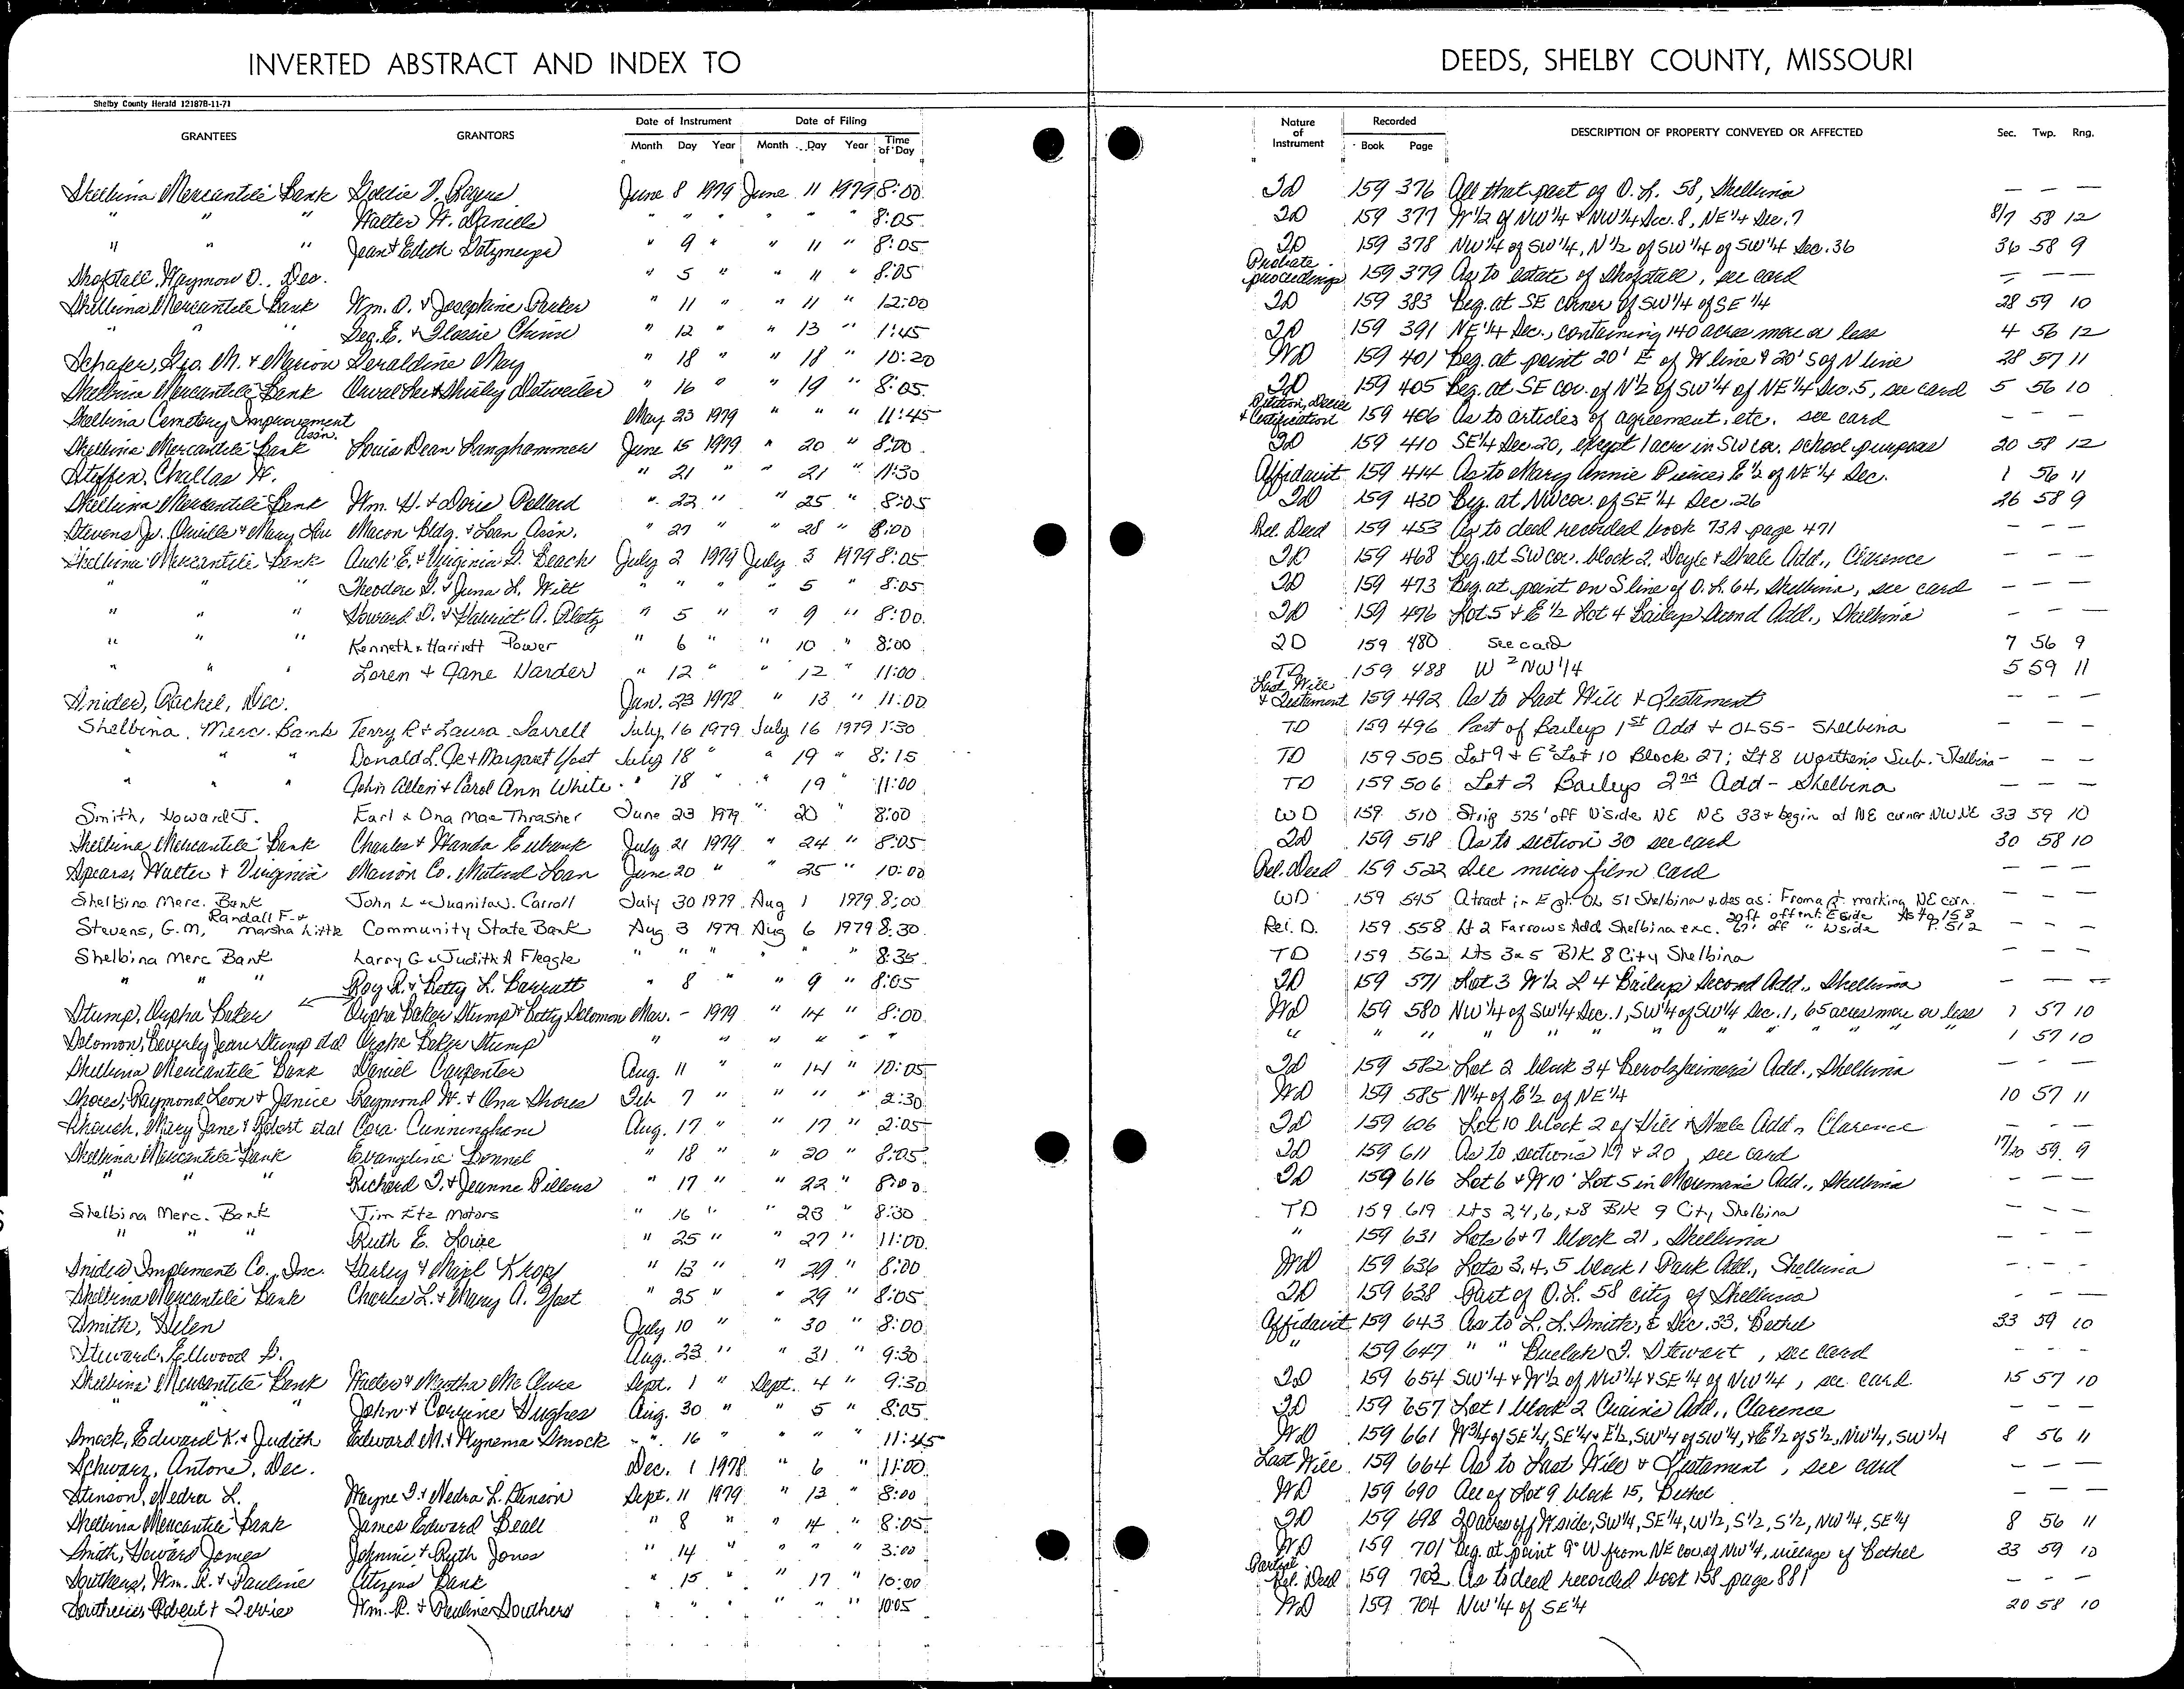 INVERTED ABSTRACT AND INDEX TO DEEDS, SHELBY COUNTY, MISSOURI
Shelby County Herald 12187B-11-71
GRANTEES GRANTORS Date of Instrument Month Day Year Date of Filing Month Day Year Time of Day Nature of Instrument Recorded Book Page DESCRIPTION OF PROPERTY CONVEYED OR AFFECTED Sec. Twp. Rng.
Shelbina Mercantile Bank Goldie V. Rogers June 8 1979 June 11 1979 8:00 TD 159 376 All that part of O.L. 58, Shelbina — — —
" " " Walter W. Daniels " " " " " " 8:05 TD 159 377 W½ of NW¼ & NW¼ Sec. 8, NE¼ Sec. 7 8/7 58 12
" " " Jean & Edith " 9 " " 11 " 8:05 TD 159 378 NW¼ of SW¼, N½ of SW¼ of SW¼ Sec. 36 36 58 9
Shofstall, Waymon O., Dec. " 5 " " 11 " 8:05 Probate proceedings 159 379 As to estate of Shofstall, see card — — —
Shelbina Mercantile Bank Wm. O. & Josephine Parker " 11 " " 11 " 12:00 TD 159 383 Beg. at SE corner of SW¼ of SE¼ 28 59 10
" " " Geo. E. & Flossie Chinn " 12 " " 13 " 1:45 TD 159 391 NE¼ Sec., containing 140 acres more or less 4 56 12
Schafer, Geo. M. & Marion Geraldine May " 18 " " 18 " 10:20 WD 159 401 Beg. at point 20' E of W line & 20' S of N line 28 57 11
Shelbina Mercantile Bank Orval Lee & Shirley Detweiler " 16 " " 19 " 8:05 TD 159 405 Beg. at SE cor. of N½ of SW¼ of NE¼ Sec. 5, see card 5 56 10
Shelbina Cemetery Improvement Assn. May 23 1979 " " " 11:45 Petition, Decree & Certification 159 406 As to articles of agreement, etc. see card — — —
Shelbina Mercantile Bank Louis Dean Langhammer June 15 1979 " 20 " 8:00 TD 159 410 SE¼ Sec. 20, except 1 acre in SW cor. school purposes 20 58 12
Steffen, Challas W. " 21 " 21 " 11:30 Affidavit 159 414 As to Mary Annie Pierces E½ of NE¼ Sec. 1 56 11
Shelbina Mercantile Bank Wm. H. & Doris Pollard " 22 " " 25 " 8:05 TD 159 430 Beg. at NW cor. of SE¼ Sec. 26 26 58 9
Stevens Jr. Orville & Mary Lou Macon Bldg. & Loan Assn. " 27 " 28 " 8:00 Rel. Deed 159 453 As to deed recorded book 73A page 471 — — —
Shelbina Mercantile Bank E. & Virginia D. Beach July 2 1979 July 3 1979 8:05 TD 159 468 Beg. at SW cor. block 2, Doyle & Shale Add., Clarence — — —
" " " Theodore G. & Juna L. Wilt " " " " 5 " 8:05 TD 159 473 Beg. at point on S line of O.L. 64, Shelbina, see card — — —
" " " Howard D. & Harriet A. Plotz " 5 " " 9 " 8:00 TD 159 476 Lot 5 & E½ Lot 4 Baileys Second Add., Shelbina — — —
" " " Kenneth & Harriett Power " 6 " " 10 " 8:00 TD 159 480 see card 7 56 9
" " " Loren & Jane Harder " 12 " " 12 " 11:00 TD 159 488 W² NW¼ 5 59 11
Snider, Rachel, Dec. Jan. 23 1978 " 13 " 11:00 Last Will & Testament 159 492 As to Last Will & Testament — — —
Shelbina Merc. Bank Terry R & Laura Sarrell July 16 1979 July 16 1979 1:30 TD 159 496 Part of Baileys 1st Add & OL55 - Shelbina — — —
" " " Donald L. Je & Margaret Yost July 18 " " 19 " 8:15 TD 159 505 Lot 9 & E² Lot 10 Block 27; Lt 8 Worthens Sub. - Shelbina — — —
" " " John Allen & Carol Ann White " 18 " " 19 " 11:00 TD 159 506 Lot 2 Baileys 2nd Add - Shelbina — — —
Smith, Howard J. Earl & Ona Mae Thrasher June 23 1979 " 20 " 8:00 WD 159 510 Strip 575' off N side NE NE 33 & begin at NE corner NW NE 33 59 10
Shelbina Mercantile Bank Charles & Wanda Eubank July 21 1979 " 24 " 8:05 TD 159 518 As to section 30 see card 30 58 10
Spears, Walter & Virginia Marion Co. Mutual Loan June 20 " " 25 " 10:00 Rel. Deed 159 522 See micro film card — — —
Shelbina Merc. Bank John L & Juanita J. Carroll July 30 1979 Aug 1 1979 8:00 WD 159 545 A tract in E pt. OL 51 Shelbina & des as: From a pt. marking NE corn. —
Stevens, G.M, Randall F. & Marsha Little Community State Bank Aug 3 1979 Aug 6 1979 8:30 Rel. D. 159 558 Lt 2 Farrows Add Shelbina exc. 20 ft off ent. E side 67' off " W side As to 158 P. 512 — — —
Shelbina Merc Bank Larry G & Judith A Fleagle " " " " " 8:35 TD 159 562 Lts 3 & 5 Blk 8 City Shelbina — — —
" " " Roy R. & Betty L. Barratt " 8 " 9 " 8:05 TD 159 571 Lot 3 W½ L 4 Baileys Second Add., Shelbina — — —
Stump, Orpha Baker Orpha Baker Stump & Betty Solomon Mar. - 1979 " 14 " 8:00 WD 159 580 NW¼ of SW¼ Sec. 1, SW¼ of SW¼ Sec. 1, 65 acres more or less 1 57 10
Solomon, Beverly Jean Stump etal Orpha Baker Stump " " " " " " " " " " " " " 1 57 10
Shelbina Mercantile Bank Daniel Carpenter Aug. 11 " " 14 " 10:05 TD 159 582 Lot 2 block 34 Berolzheimers Add., Shelbina — — —
Shores, Raymond Leon & Janice Raymond W. & Ona Shores Feb 7 " " " " 2:30 WD 159 585 N¼ of E½ of NE¼ 10 57 11
Mary Jane & Robert etal Cora Cunningham Aug. 17 " " 17 " 2:05 TD 159 606 Lot 10 block 2 of Hill & Shale Add., Clarence — — —
Shelbina Mercantile Bank Evangeline Bonnel " 18 " " 20 " 8:05 TD 159 611 As to sections 19 & 20, see card 19/20 59 9
" " " Richard T. & Jeanne Pillers " 17 " " 22 " 8:00 TD 159 616 Lot 6 & W10' Lot 5 in Moremans Add., Shelbina — — —
Shelbina Merc. Bank Jim Etz Motors " 16 " " 23 " 8:30 TD 159 619 Lts 24,6,&8 Blk 9 City Shelbina — — —
" " " Ruth E. Louie " 25 " " 27 " 11:00 " 159 631 Lots 6 & 7 block 21, Shelbina — — —
Snider Implement Co., Inc. Harley & Krop " 13 " " 29 " 8:00 WD 159 636 Lots 3, 4, 5 block 1 Park Add., Shelbina — — —
Shelbina Mercantile Bank Charlie L. & Mary A. Yost " 25 " " 29 " 8:05 TD 159 638 Part of O.L. 58 city of Shelbina — — —
Smith, Helen July 10 " " 30 " 8:00 Affidavit 159 643 As to L. L. Smith, & Sec. 33, Bethel 33 59 10
Steward, Ellwood Aug. 23 " " 31 " 9:30 " 159 647 " " Buelah I. Stewart, see card — — —
Shelbina Mercantile Bank Walter & Martha McClure Sept. 1 " Sept. 4 " 9:30 TD 159 654 SW¼ & W½ of NW¼ & SE¼ of NW¼, see card 15 57 10
" " " John & Corrine Hughes Aug. 30 " " 5 " 8:05 TD 159 657 Lot 1 block 2 Crains Add., Clarence — — —
Smock, Edward K. & Judith Edward M. & Wynema Smock " 16 " " " " 11:45 WD 159 661 W¾ of SE¼, SE¼ & E½, SW¼ of SW¼, & E½ of S½, NW¼, SW¼ 8 56 11
Schwarz, Antone, Dec. Dec. 1 1978 " 6 " 11:00 Last Will 159 664 As to Last Will & Testament, see card — — —
Stinson, Nedra L. Wayne I. & Nedra L. Stinson Sept. 11 1979 " 13 " 8:00 WD 159 690 All of Lot 9 block 15, Bethel — — —
Shelbina Mercantile Bank James Edward Beall " 8 " " 14 " 8:05 TD 159 698 20 acres off W side, SW¼, SE¼, W½, S½, S½, NW¼, SE¼ 8 56 11
Smith, Howard James Johnnie & Ruth Jones " 14 " " " " 3:00 WD 159 701 Beg. at point 9° W from NE cor. of NW¼, village of Bethel 33 59 10
Southers, Wm. R. & Pauline Citizens Bank " 15 " " 17 " 10:00 Partial Rel. Deed 159 703 As to deed recorded book 158 page 881 — — —
Southers Robert & Wm. R. & Pauline Southers " " " " " " 10:05 WD 159 704 NW¼ of SE¼ 20 58 10